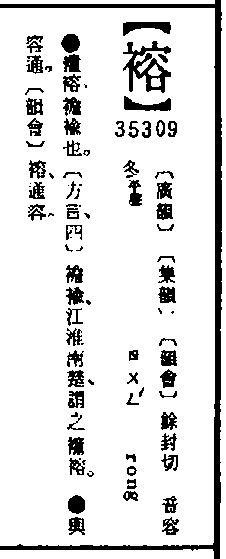 【褣】
35309
〔廣韻〕〔集韻〕〔韻會〕餘封切 音容
冬平聲 ㄖㄨㄥˊ rong
●𧝎褣、襜褕也。〔方言、四〕襜褕、江淮南楚、謂之𧝎褣。●與
容通。〔韻會〕褣、通容。